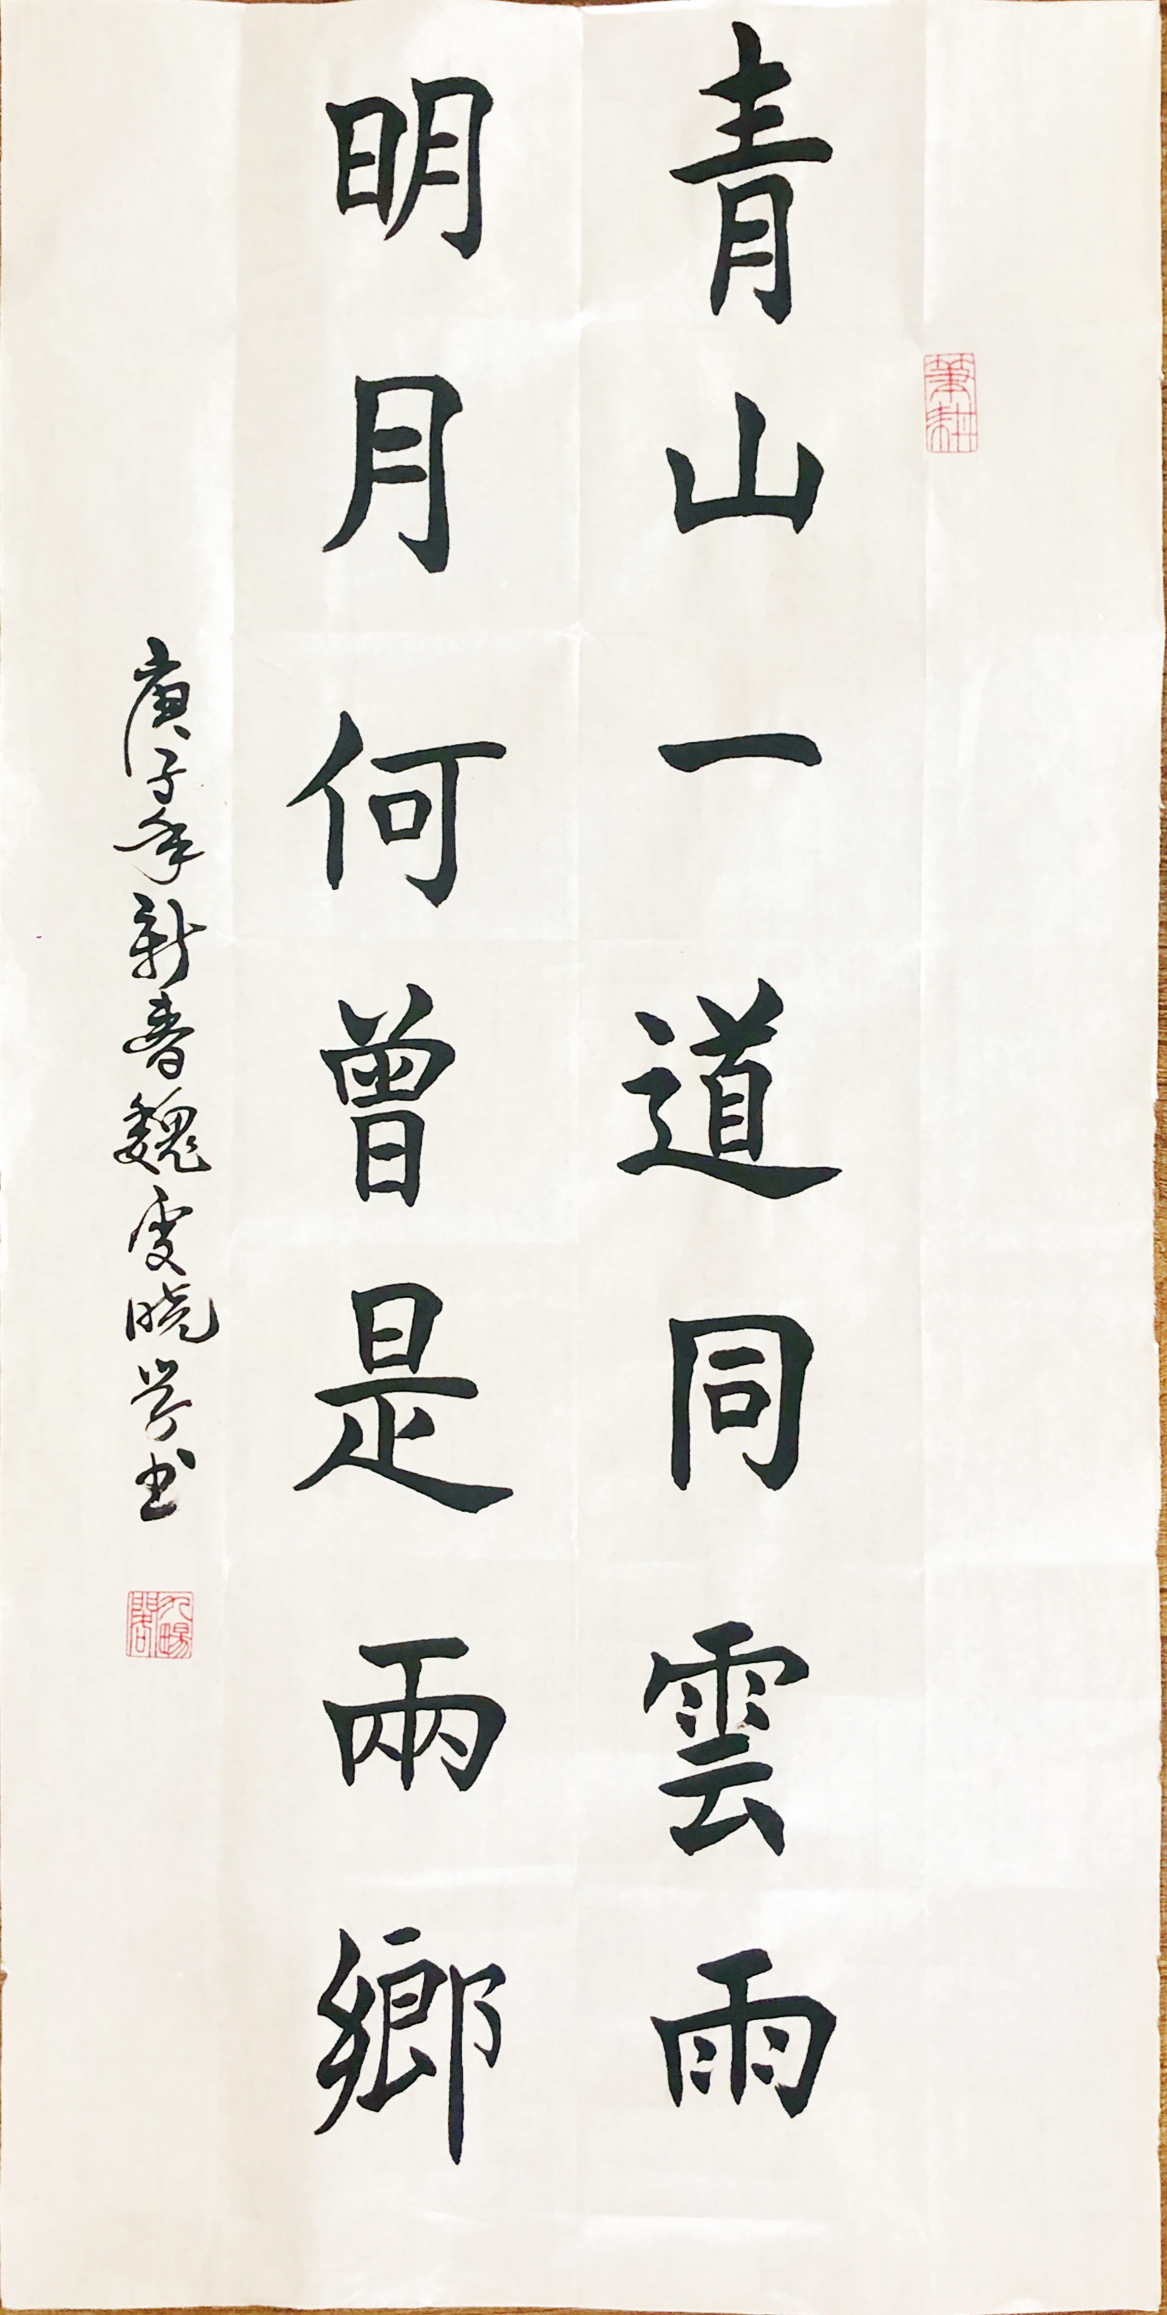 青山一道同雲雨
明月何曾是兩鄉
庚子年新春魏雯曉岑书